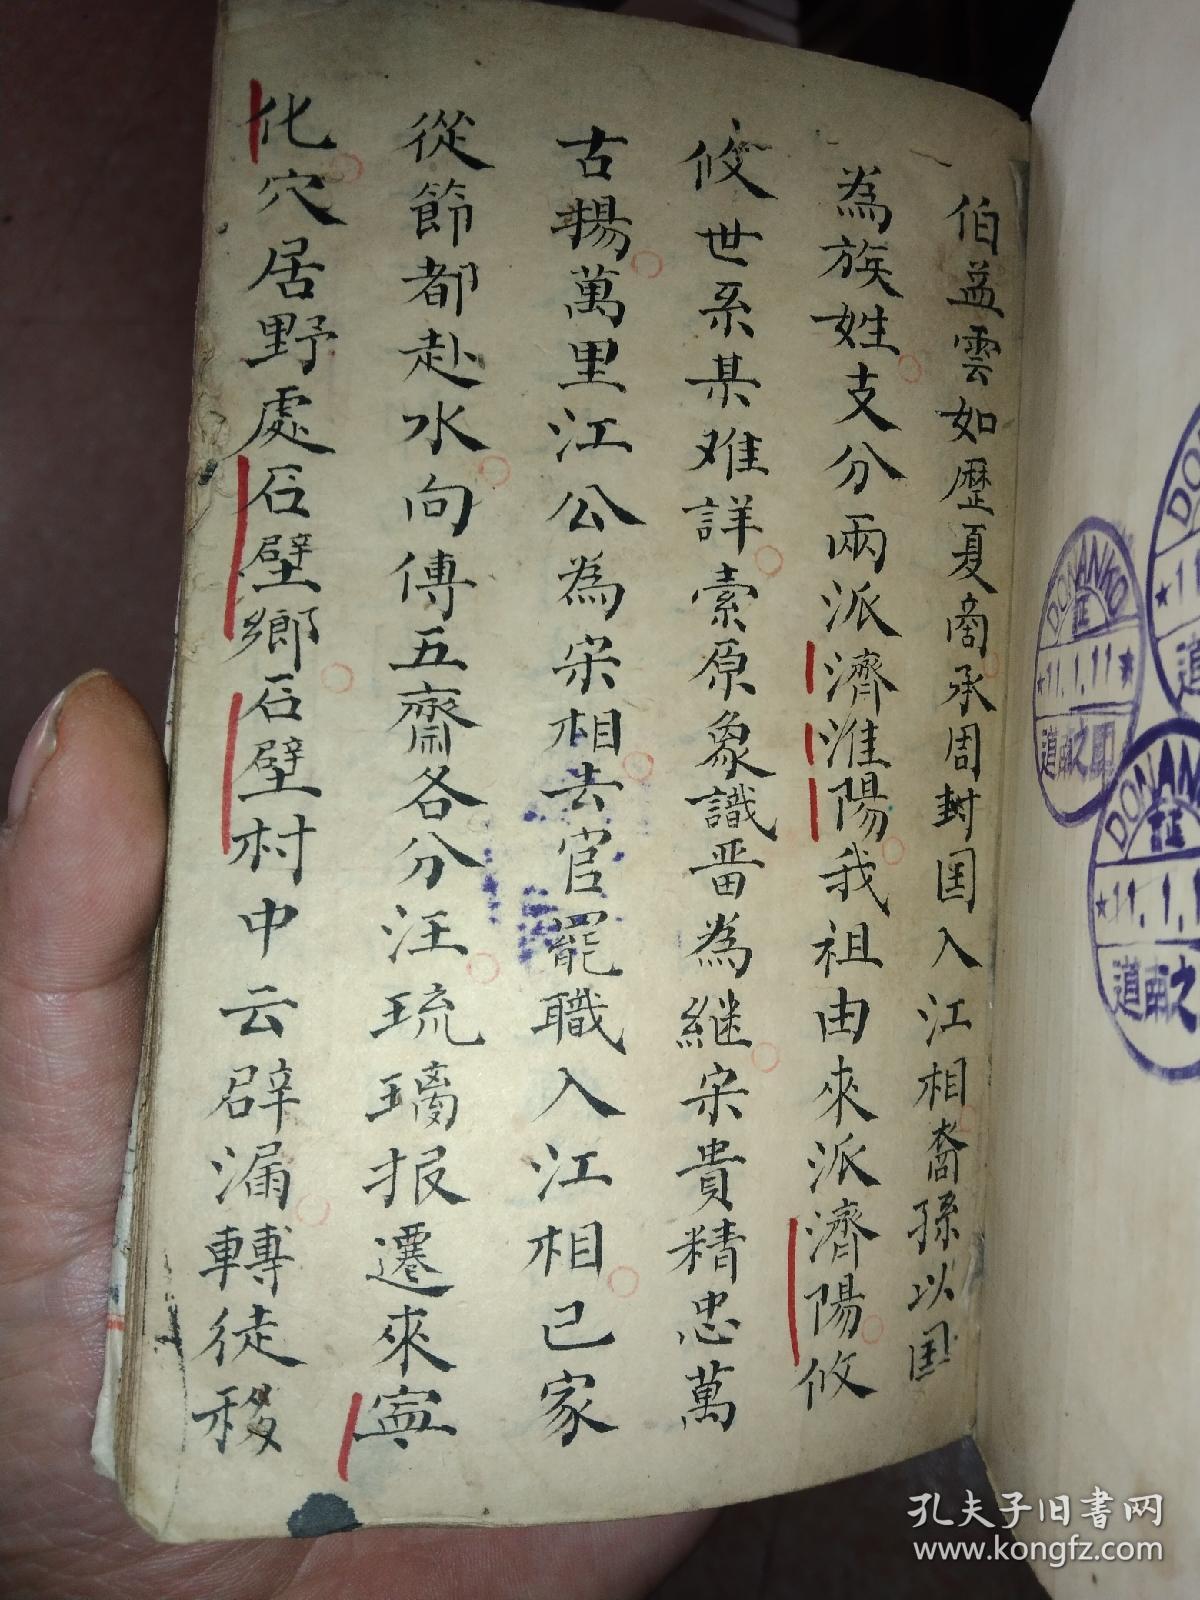 伯益雲如歷夏商承周封国入江相裔孫以国
為族姓支分兩派濟淮陽我祖由來派濟陽攸
攸世系某难詳索原象識晋為継宋貴精忠萬
古揚萬里江公為宋相去官罷職入江相已家
從節都赴水向傳五齋各分汪琉璃报遷來寧
化穴居野處石壁鄉石壁村中云辟漏轉徒移
DONANKO
証
11.1.11
道南之
DONANKO
証
11.1.1
道南之
孔夫子旧书网
www.kongfz.com